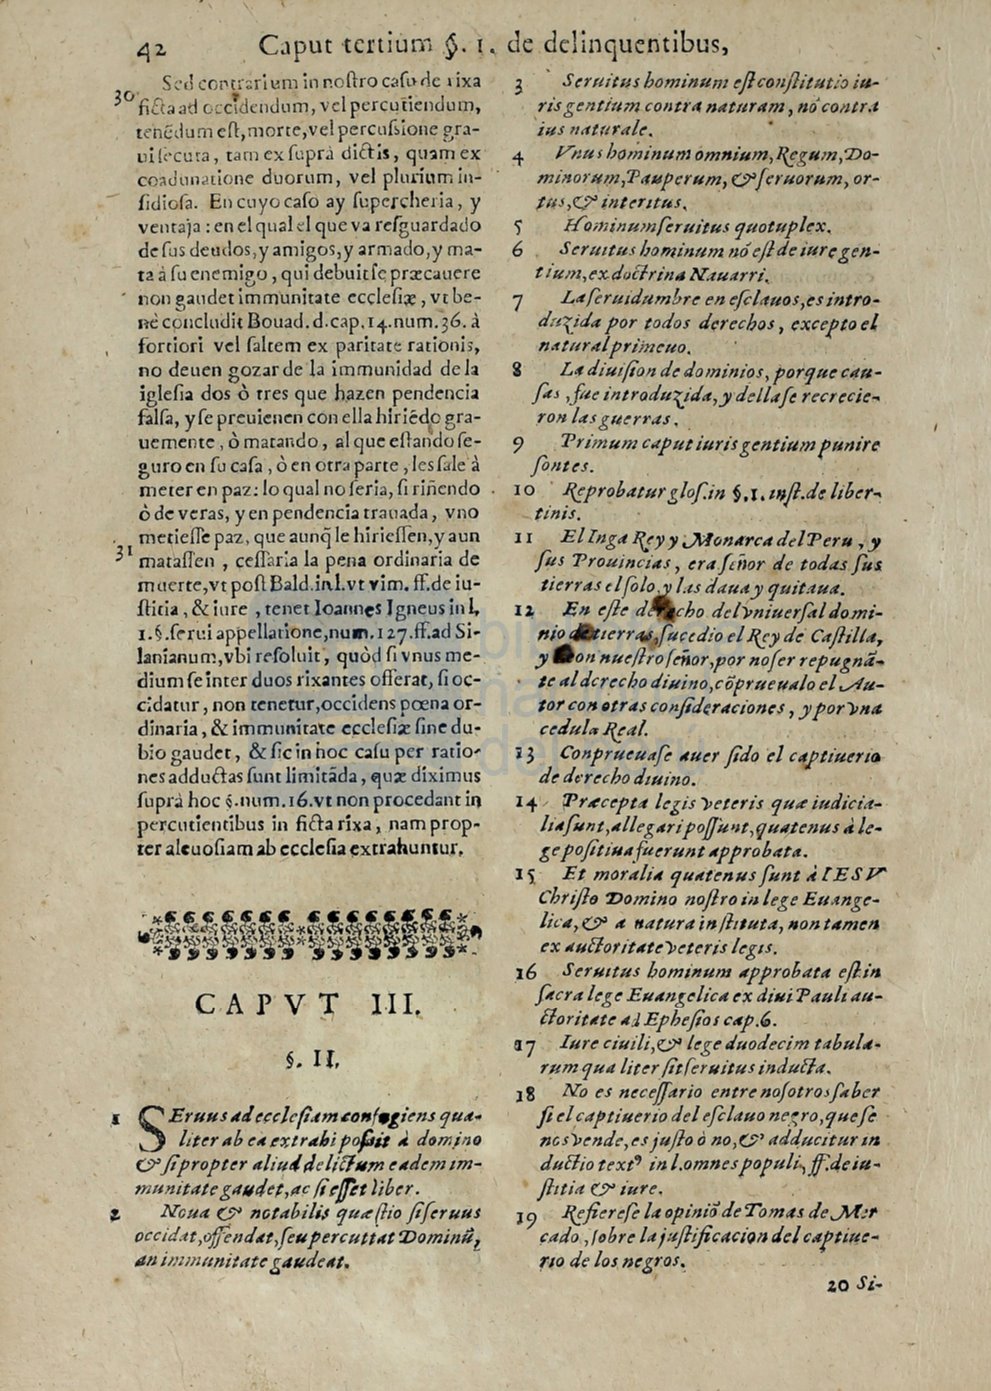 42 Caput tertium §. 1. de delinquentibus,
Sed contrarium in nostro casu de rixa
30 ficta ad occidendum, vel percutiendum,
tenẽdum est, morte, vel percussione gra-
ui secuta, tam ex suprà dictis, quam ex
coadunatione duorum, vel plurium in-
sidiosa. En cuyo caso ay supercheria, y
ventaja: en el qual el que va resguardado
de sus deudos, y amigos, y armado, y ma-
ta à su enemigo, qui debuit se præcauere
non gaudet immunitate ecclesiæ, vt be-
nè concludit Bouad. d. cap. 14. num. 36. à
fortiori vel saltem ex paritate rationis,
no deuen gozar de la immunidad de la
iglesia dos ò tres que hazen pendencia
falsa, y se preuienen con ella hiriẽdo gra-
uemente, ò matando, al que estando se-
guro en su casa, ò en otra parte, les sale à
meter en paz: lo qual no seria, si riñendo
ò de veras, y en pendencia trauada, vno
metiesse paz, que aunq̃ le hiriessen, y aun
31 matassen, cessaria la pena ordinaria de
muerte, vt post Bald. in l. vt vim. ff. de iu-
stitia, & iure, tenet Ioannes Igneus in l.
1. §. serui appellatione, num. 127. ff. ad Si-
lanianum, vbi resoluit, quòd si vnus me-
dium se inter duos rixantes offerat, si oc-
cidatur, non tenetur, occidens pœna or-
dinaria, & immunitate ecclesiæ sine du-
bio gaudet, & sic in hoc casu per ratio-
nes adductas sunt limitãda, quæ diximus
suprà hoc §. num. 16. vt non procedant in
percutientibus in ficta rixa, nam prop-
ter aleuosiam ab ecclesia extrahuntur.
CAPVT III.
§. II.
1 SEruus ad ecclesiam confugiens qua-
liter ab ea extrahi possit à domino
& si propter aliud delictum eadem im-
munitate gaudet, ac si esset liber.
2 Noua & notabilis quæstio si seruus
occidat, offendat, seu percuttat Dominũ,
an immunitate gaudeat.
3 Seruitus hominum est constitutio iu-
ris gentium contra naturam, nõ contra
ius naturale.
4 Vnus hominum omnium, Regum, Do-
minorum, Pauperum, & seruorum, or-
tus, & interitus.
5 Hominum seruitus quotuplex.
6 Seruitus hominum nõ est de iure gen-
tium, ex doctrina Nauarri.
7 La seruidumbre en esclauos, es intro-
duzida por todos derechos, excepto el
natural primeuo.
8 La diuision de dominios, porque cau-
sas, fue introduzida, y della se recrecie-
ron las guerras.
9 Primum caput iuris gentium punire
sontes.
10 Reprobatur glos. in §. 1. inst. de liber-
tinis.
11 El Inga Rey y Monarca del Peru, y
sus Prouincias, era señor de todas sus
tierras el solo, y las daua y quitaua.
12 En este derecho del vniuersal domi-
nio de tierras, sucedio el Rey de Castilla,
y Leon nuestro señor, por no ser repugnã-
te al derecho diuino, cõprueualo el Au-
tor con otras consideraciones, y por vna
cedula Real.
13 Conprueuase auer sido el captiuerio
de derecho diuino.
14 Præcepta legis veteris quæ iudicia-
lia sunt, allegari possunt, quatenus à le-
ge positiua fuerunt approbata.
15 Et moralia quatenus sunt à IESV
Christo Domino nostro in lege Euange-
lica, & a natura instituta, non tamen
ex auctoritate veteris legis.
16 Seruitus hominum approbata est in
sacra lege Euangelica ex diui Pauli au-
ctoritate ad Ephesios cap. 6.
17 Iure ciuili, & lege duodecim tabula-
rum qualiter sit seruitus inducta.
18 No es necessario entre nosotros saber
si el captiuerio del esclauo negro, que se
nos vende, es justo ò no, & adducitur in
ductio textꝰ in l. omnes populi, ff. de iu-
stitia & iure.
19 Refierese la opiniõ de Tomas de Mer
cado, sobre la justificacion del captiue-
rio de los negros.
20 Si-